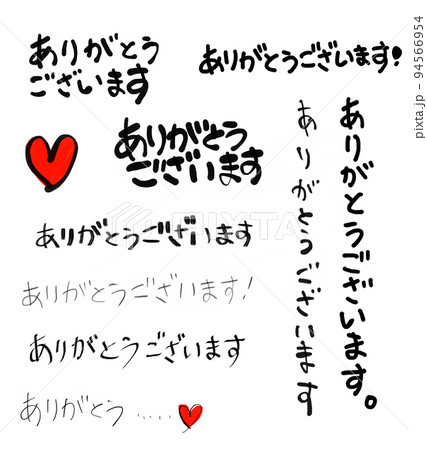 ありがとう
ございます
ありがとうございます!
ありがとう
ございます
ありがとうございます
ありがとうございます!
ありがとうございます
ありがとう.....
ありがとうございます。
ありがとうございます
PIXTA
pixta.jp - 94566954